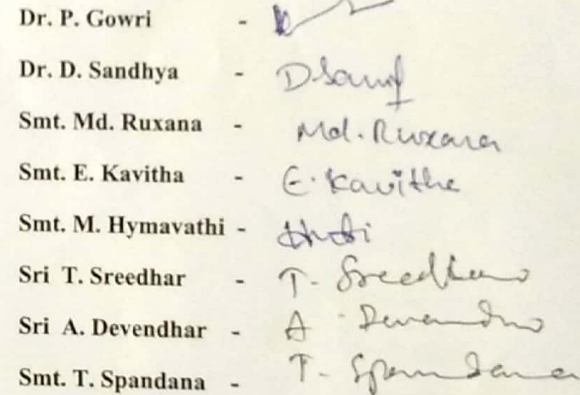 Dr. P. Gowri -
Dr. D. Sandhya -
Smt. Md. Ruxana - Md. Ruxana
Smt. E. Kavitha - E. Kavitha
Smt. M. Hymavathi -
Sri T. Sreedhar - T. Sreedhar
Sri A. Devendhar - A
Smt. T. Spandana - T. Spandana